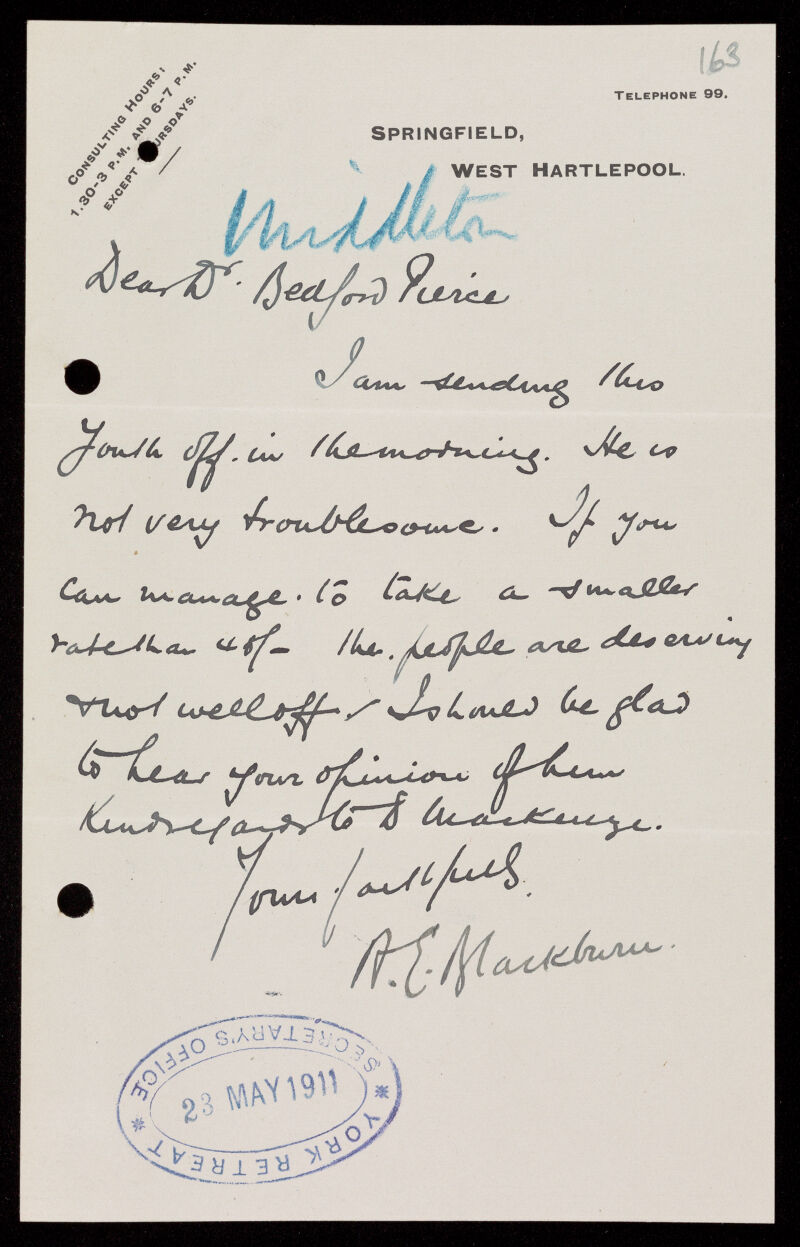 163
CONSULTING HOURS:
1.30-3 P.M. AND 6-7 P.M.
EXCEPT THURSDAYS.
TELEPHONE 99.
SPRINGFIELD,
WEST HARTLEPOOL.
Middleton
Dear Dr. Bedford Pierce
I am sending this
Youth off. in the morning. He is
not very troublesome. If you
can manage. to take a smaller
rate than 40/- the. people are deserving
& not well off & I should be glad
to hear your opinion of him
Kind regards to D Mackenzie.
Yours faithfully.
A. E. Blackburn.
SECRETARY'S OFFICE
23 MAY 1911
* YORK RETREAT *